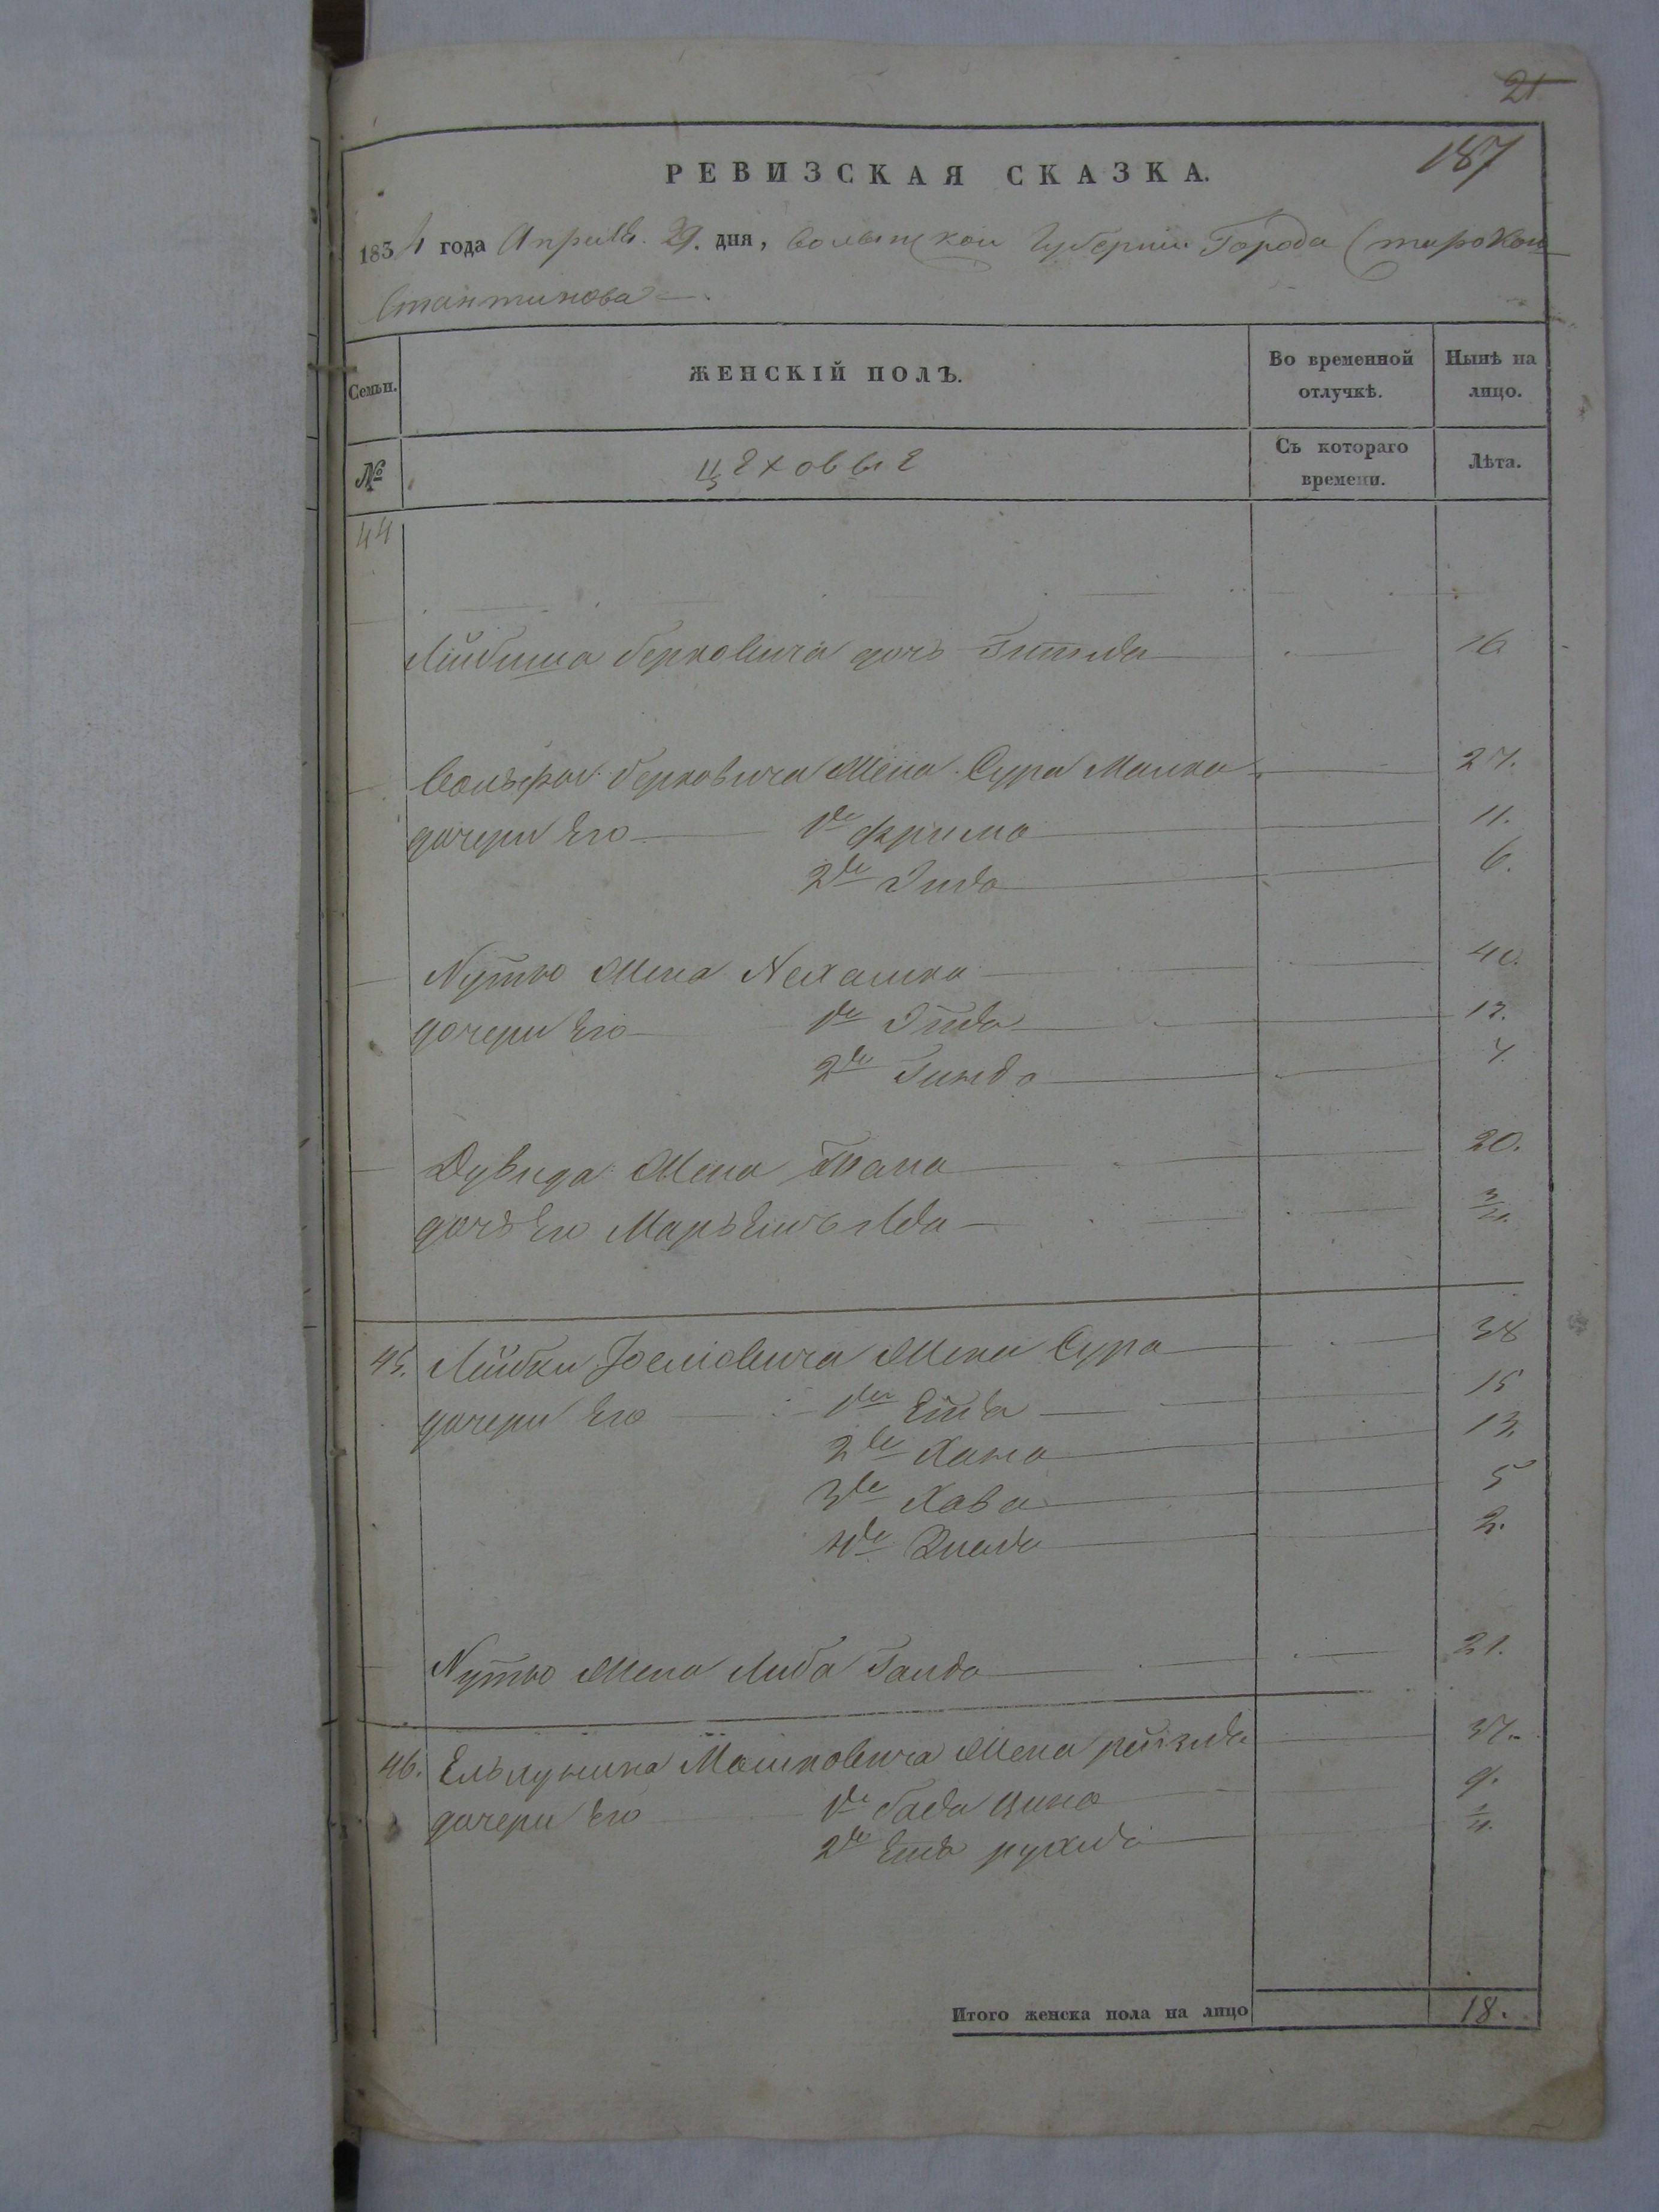 21
187
РЕВИЗСКАЯ СКАЗКА.
1834 года Апреля 29. дня, Волынской Губернии Города Старокон
стантинова
Семьи. ЖЕНСКІЙ ПОЛЪ. Во временной отлучкѣ. Нынѣ на лицо.
№ цеховые Съ котораго времени. Лѣта.
44
Лейбиша Берковича дочь 16
Вольфа Берковича Жена Сура Малка 27.
дочери Его 1я Фрима 11.
2я 6.
Нуты Жена Нехамка 40.
дочери Его 1я 13.
2я 7.
Дувида Жена 20.
дочь Его
45. Лейбы Жена Сура 38
дочери Его 1я 15
2я Хана 13.
3я Хава 5
4я 2.
Нуты Жена Либа Голда 21.
46. Мошковича Жена Рейзля 37.
дочери Его 1я 9.
2я
Итого женска пола на лицо 18.